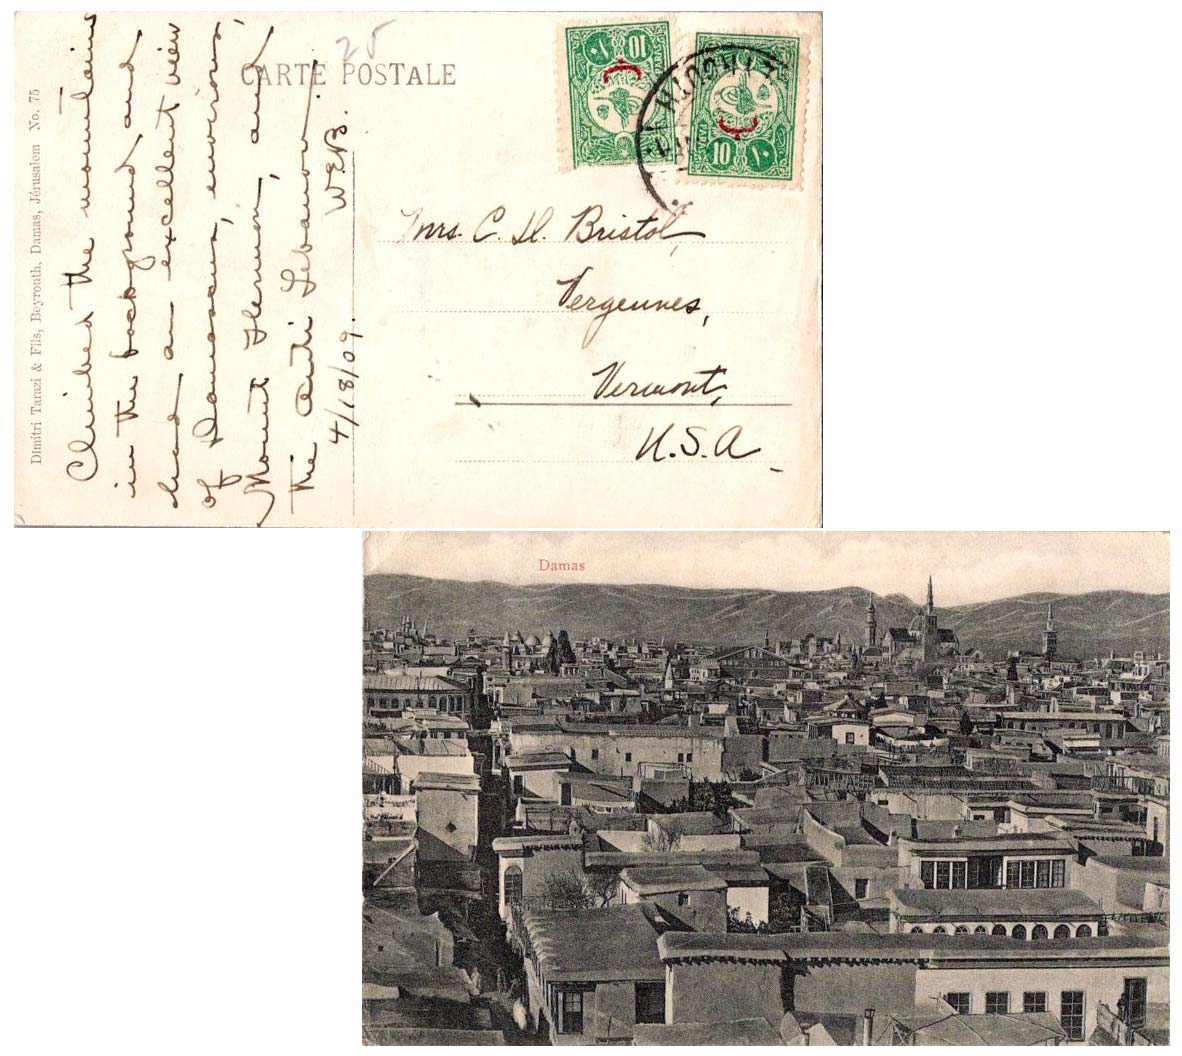 Climbed the mountains
in the background and
had an excellent view
of Damascus, environs
Mount Hermon, and
the Anti Lebanon.
4/18/09. W.E.B.
Dimitri Tarazi & Fils, Beyrouth, Damas, Jérusalem No. 75
25
CARTE POSTALE
10 ١٠
10 ١٠
Mrs. C. H. Bristol,
Vergennes,
Vermont,
U.S.A.
Damas